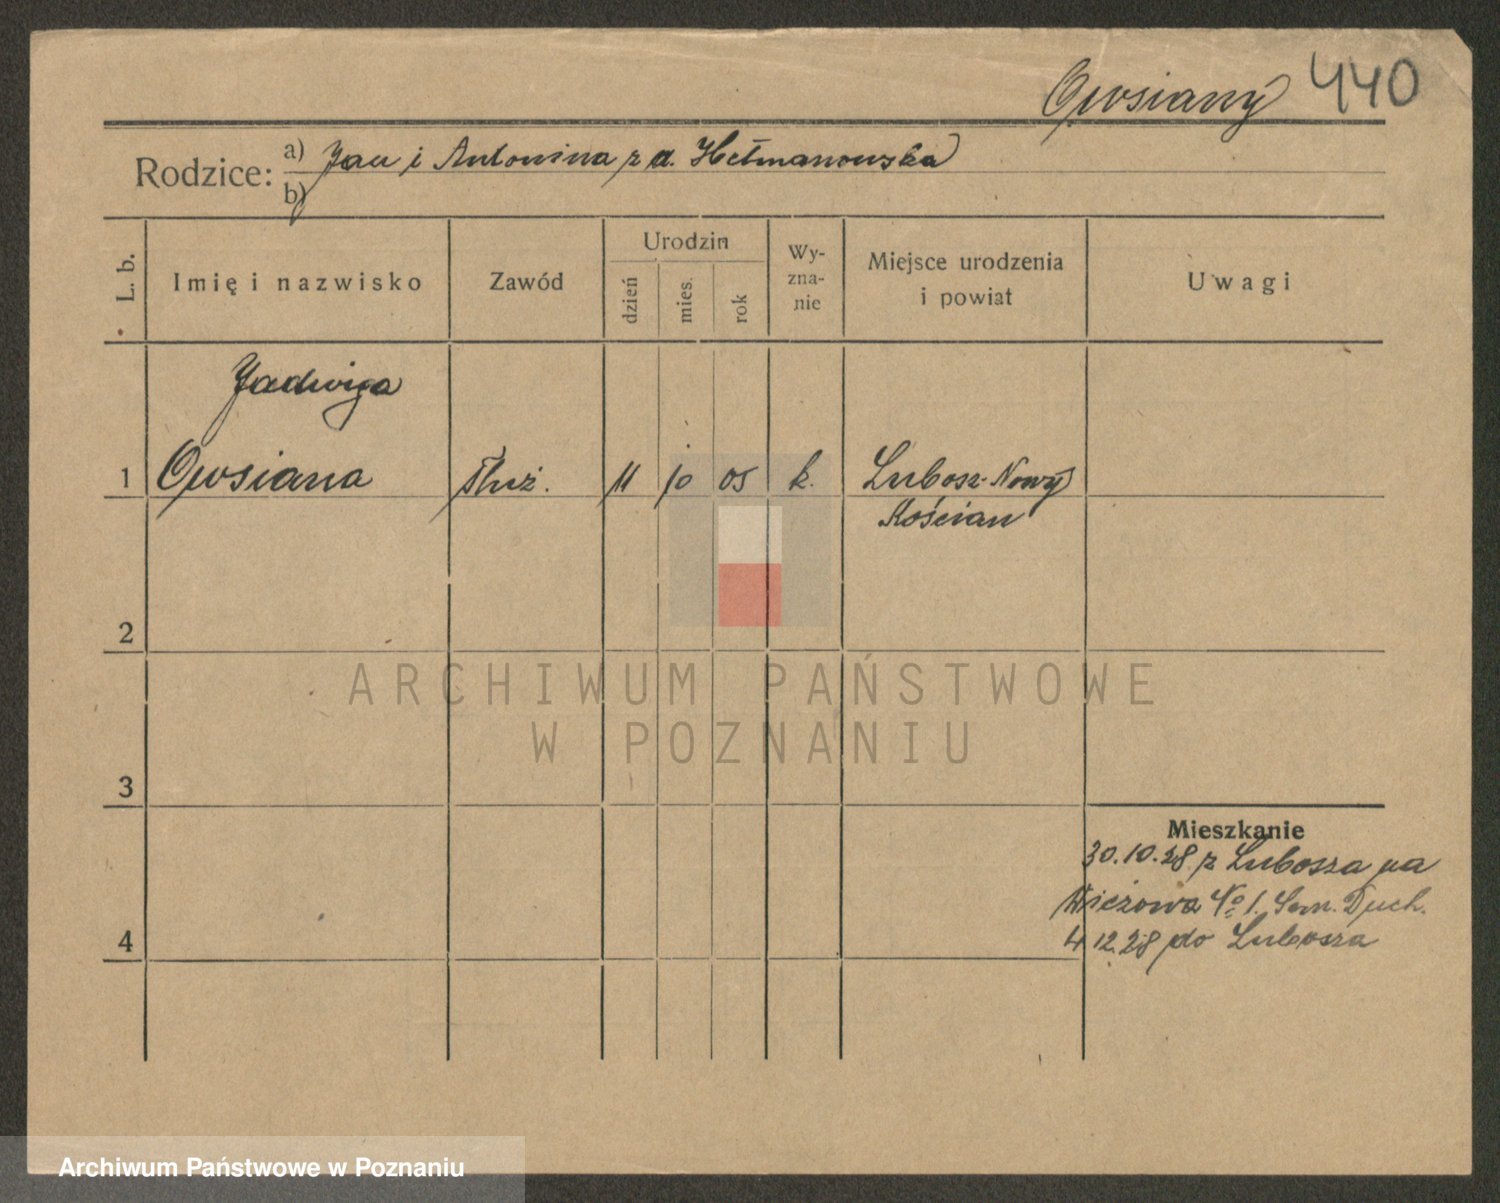 Owsiany 440
Rodzice: a) Jan i Antonina z d. Hetmanowska
b)
L. b.
Imię i nazwisko
Zawód
Urodzin
dzień
mies.
rok
Wy-
zna-
nie
Miejsce urodzenia
i powiat
Uwagi
Jadwiga
1 Owsiana służ. 11 10 05 k. Lubosz-Nowy
Kościan
2
3
4
Mieszkanie
30.10.28 z Lubosza na
Wieżowa No 1. Sem. Duch.
4 12.28 do Lubosza
ARCHIWUM PAŃSTWOWE
W POZNANIU
Archiwum Państwowe w Poznaniu